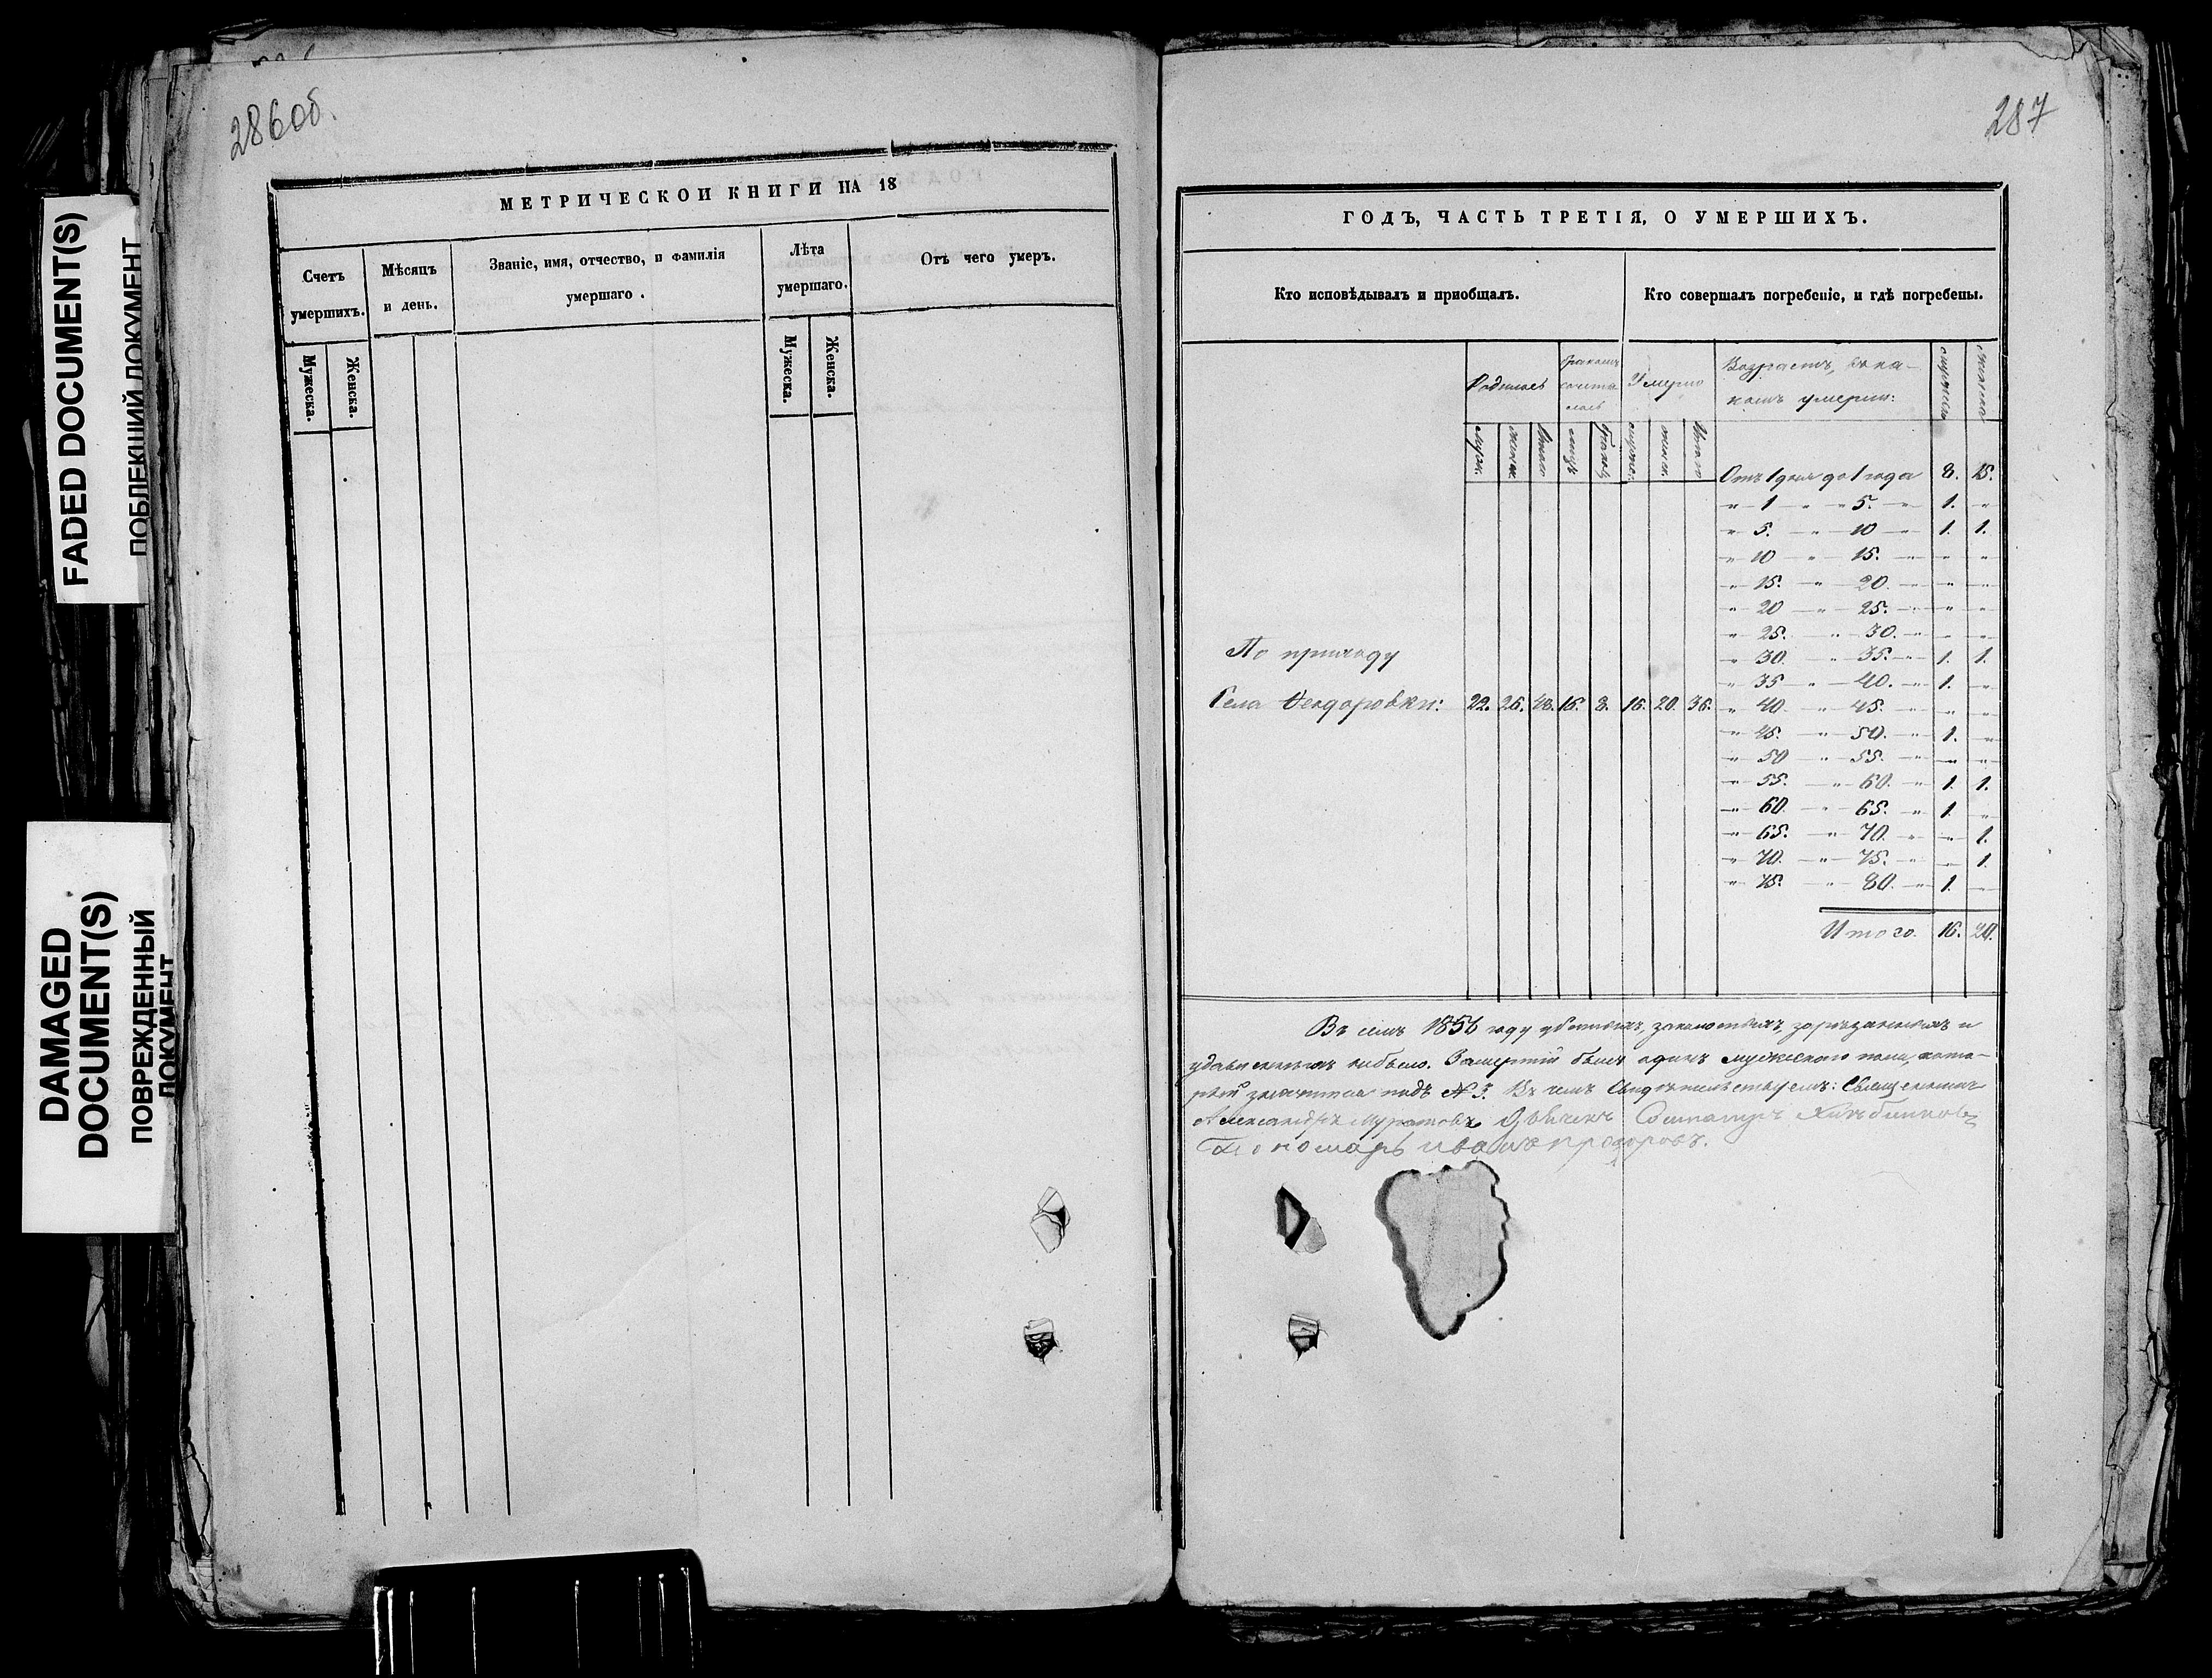 FADED DOCUMENT(S)
ПОБЛЕКШИЙ ДОКУМЕНТ
DAMAGED
DOCUMENT(S)
ПОВРЕЖДЕННЫЙ
ДОКУМЕНТ
286об.
МЕТРИЧЕСКОИ КНИГИ НА 18
Счетъ умершихъ.
Мѣсяцъ и день.
Званіе, имя, отчество, и фамилія
умершаго.
Лѣта умершаго.
Отъ чего умеръ.
Мужеска.
Женска.
Мужеска.
Женска.
287
ГОДЪ, ЧАСТЬ ТРЕТІЯ, О УМЕРШИХЪ.
Кто исповѣдывалъ и пріобщалъ.
Кто совершалъ погребеніе, и гдѣ погребены.
Родилось
Умерло
Возрастъ, въ ка-
комъ умерли:
Отъ 1 дня до 1 года 8. 15.
" 1 " 5. " 1. "
" 5. " 10 " 1. 1.
" 10 " 15. " " "
" 15. " 20. " " "
" 20 " 25. " " "
" 25. " 30. " " "
" 30. " 35. " 1. 1.
" 35 " 40. " 1. "
" 40. " 45. " " "
" 45. " 50. " 1. "
" 50 " 55. " " "
" 55. " 60. " 1. 1.
" 60 " 65. " 1. "
" 65. " 70. " " 1.
" 70. " 75. " " 1.
" 75. " 80. " 1. "
Итого. 16. 20.
По приходу
Села Ѳеодоровки: 22. 26. 48. 16. 8. 16. 20. 36.
Въ семъ 1856 году убитыхъ, заколотыхъ, зарѣзанныхъ и
удавленныхъ небыло. Замершій былъ одинъ мужескаго пола, кото-
рый значится подъ № 3. Въ чемъ Свидѣтельствуемъ: Священникъ
Александръ Муратовъ
Пономарь Иванъ Прохоровъ.